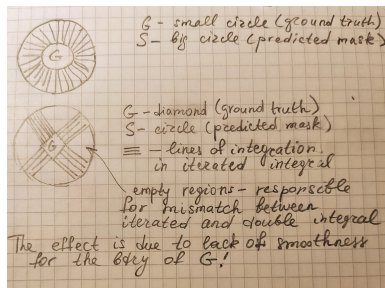 G - small circle (ground truth)
S - big circle (predicted mask)
G
G - diamond (ground truth)
S - circle (predicted mask)
- lines of integration
in iterated integral
G
empty regions - responsible
for mismatch between
iterated and double integral
The effect is due to lack of smoothness
for the bdry of G!